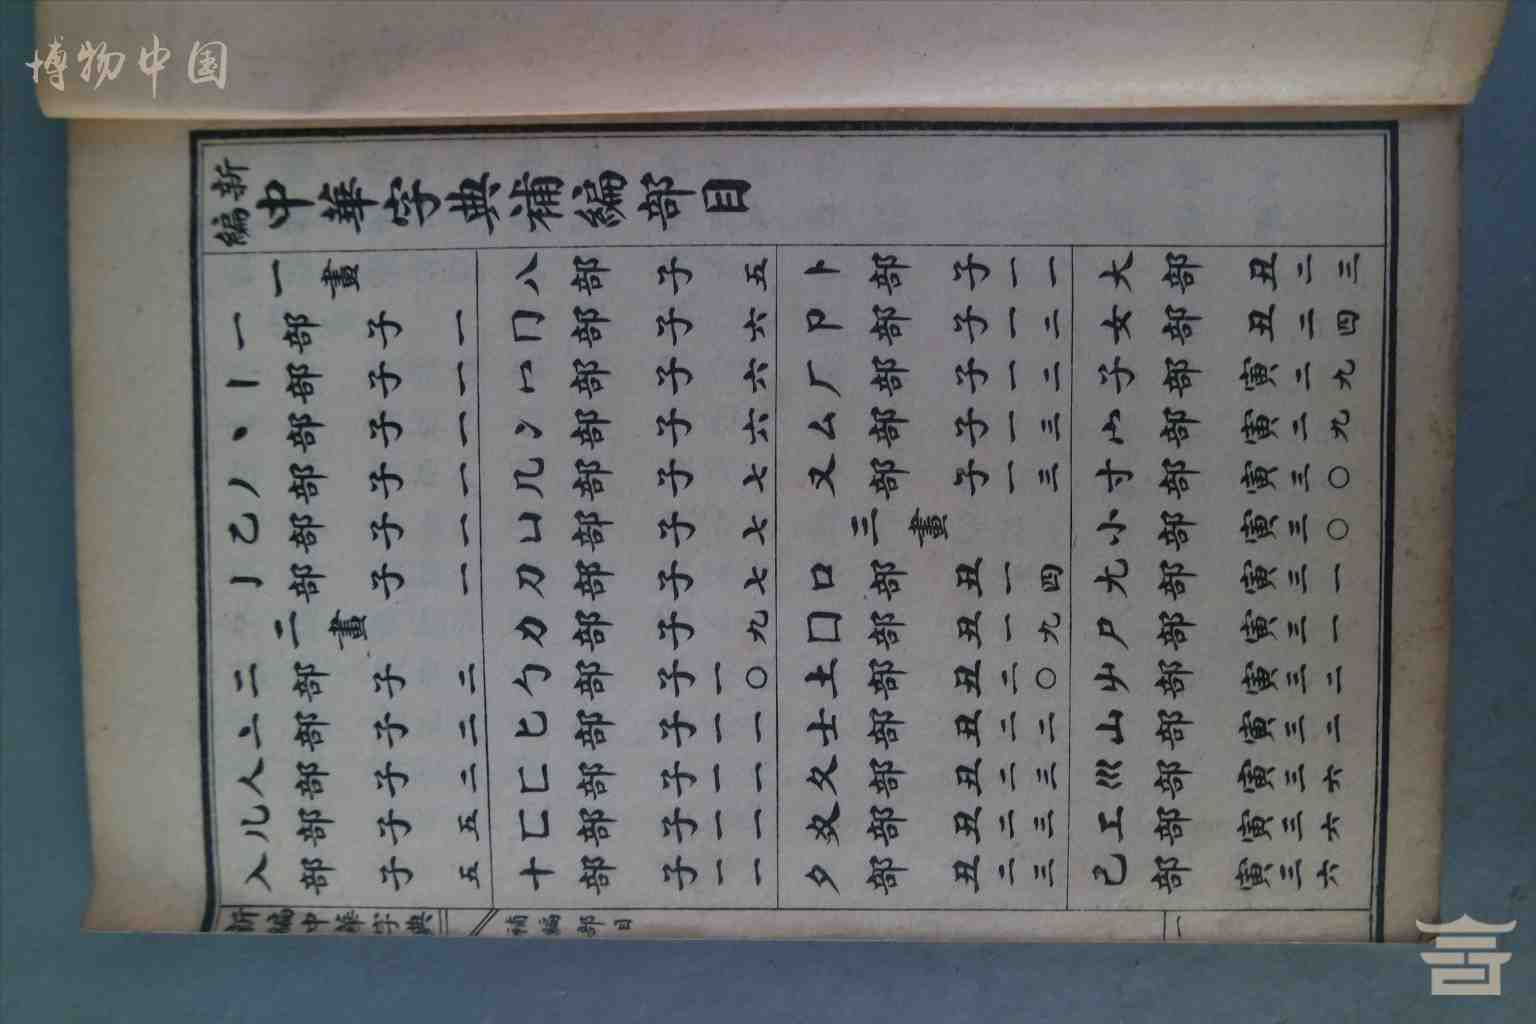 博物中国
新編中華字典補編部目
一畫
一部子一
丨部子一
丶部子一
丿部子一
乙部子一
亅部子一
二畫
二部子二
亠部子二
人部子二
儿部子五
入部子五
八部子五
冂部子六
冖部子六
冫部子六
几部子七
凵部子七
刀部子七
力部子九
勹部子一〇
匕部子一一
匚部子一一
匸部子一一
十部子一一
卜部子一一
卩部子一二
厂部子一二
厶部子一三
又部子一三
三畫
口部丑一四
囗部丑一九
土部丑二〇
士部丑二二
夂部丑二三
夊部丑二三
夕部丑二三
大部丑二三
女部丑二四
子部寅二九
宀部寅二九
寸部寅三〇
小部寅三〇
尢部寅三一
尸部寅三一
屮部寅三二
山部寅三二
巛部寅三六
工部寅三六
己部寅三六
新編中華字典 補編部目 一